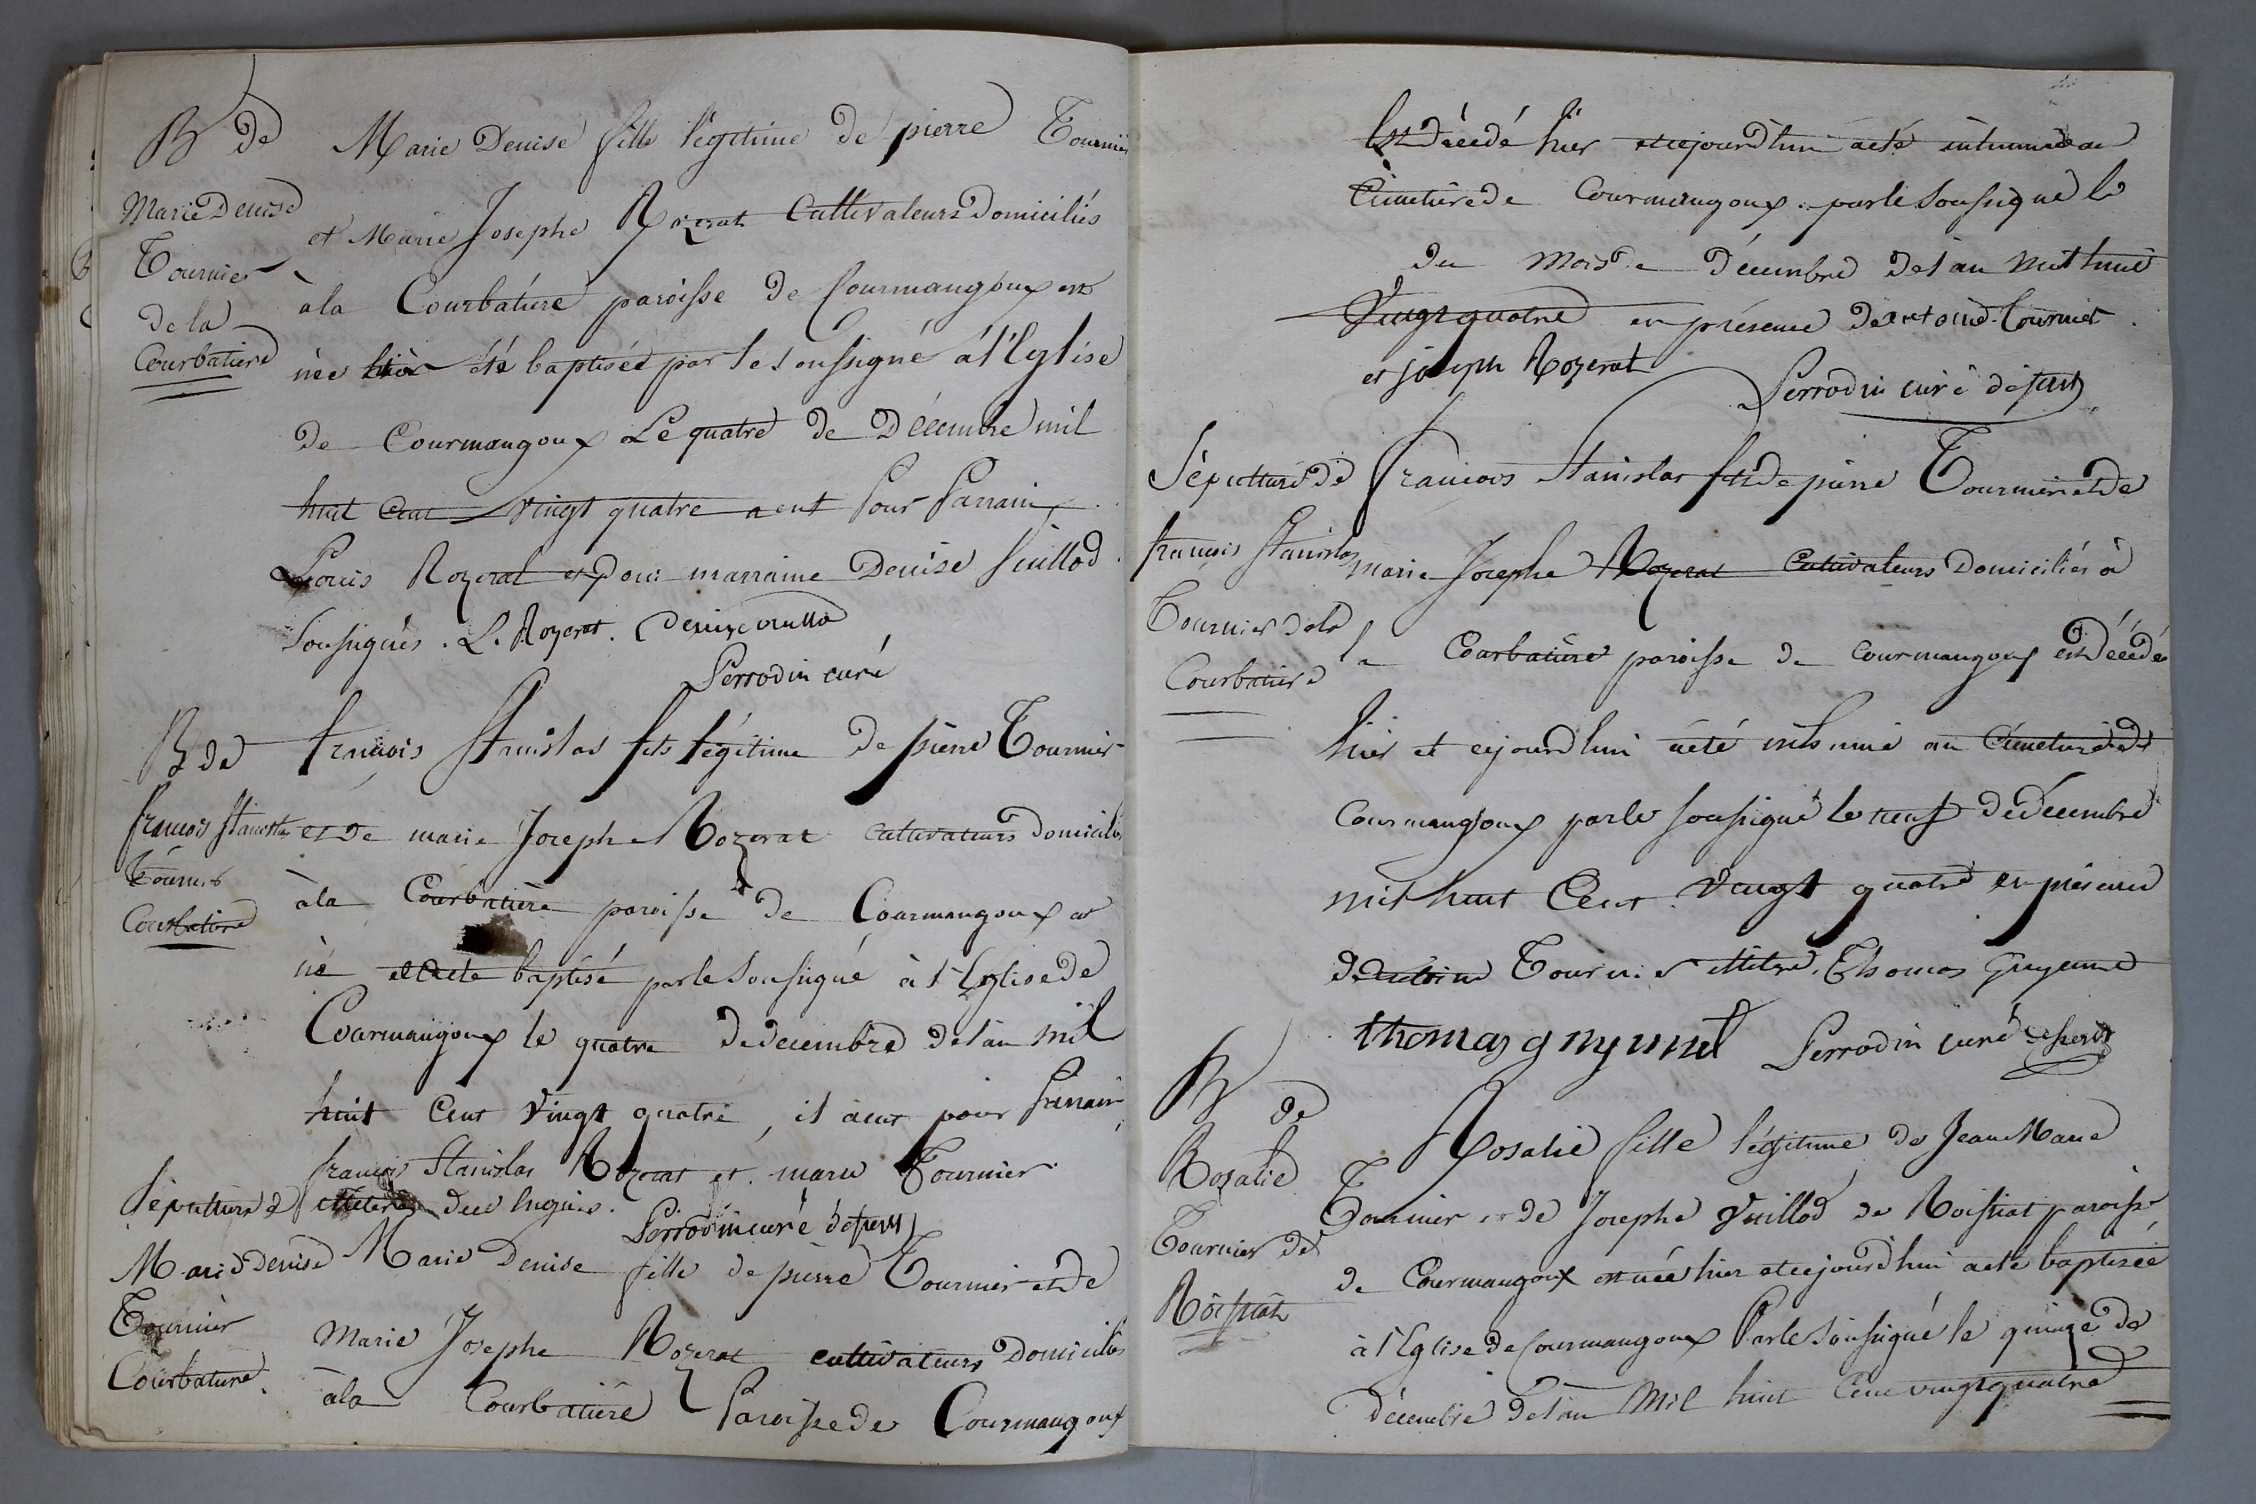 B de
Marie Denise
Tournier
de la
Courbatiere
Marie Denise fille légitime de pierre Tournier
et Marie Josephe Rozerat Cultivateurs Domiciliés
à la Courbatiere paroisse de Courmangoux est
née hier été baptisée par le soussigné à l'Eglise
de Courmangoux Le quatre de Décembre mil
huit Cent vingt quatre a eut Pour Parrain
Louis Rozerat et pour marraine Denise Vuillod
Soussignés . L. Rozerat . Denise vuillod
Perrodin curé
B de
françois Stanislas
Tournier
Courbatiere
françois Stanislas fils légitime de pierre Tournier
et de marie Joseph Rozerat Cultivateurs domiciliés
à la Courbatiere paroisse de Courmangoux est
né et a été baptisé par le Soussigné à l'Eglise de
Courmangoux le quatre de decembre de l'an mil
huit Cent Vingt quatre, il a eut pour Parrain
françois Stanislas Rozerat et marie Tournier
illiterés de ce enquis. Perrodin curé deserv
Sépulture d
Marie denise
Tournier
Courbatiere.
Marie Denise fille de pierre Tournier et de
Marie Josephe Rozerat cultivateurs Domiciliés
à la Courbatiere Paroisse de Courmangoux
Est Décédé hier et cejourd'hui a été inhumé au
Cimetiere de Courmangoux par le Soussigné le
du Mois de Décembre de l'an mil huit
Vingt quatre en présence de antoine Tournier
et joseph Rozerat Perrodin curé deserv
Sépulture de
françois Stanislas
Tournier de la
Courbatiere
francois Stanislas fils de pierre Tournier et de
marie Josephe Rozerat Cultivateurs Domiciliés à
la Courbatiere paroisse de Courmangoux est Décédé
hier et cejourd'hui a été inhumé au Cimetiere de
Courmangoux par le soussigné le neuf de décembre
mil huit Cent Vingt quatre en présence
d'antoine Tournier illitere, Thomas Guyennet
thomas gnyunet Perrodin curé deserv
B de
Rosalie
Tournier de
Roissiat
Rosalie fille légitime de Jean Marie
Tournier et de Josephe Vuillod de Roissiat paroisse
de Courmangoux est née hier et cejourd'hui a été baptisée
à l'Eglise de Courmangoux Par le Soussigné le quinze de
décembre de l'an Mil huit Cent vingt quatre